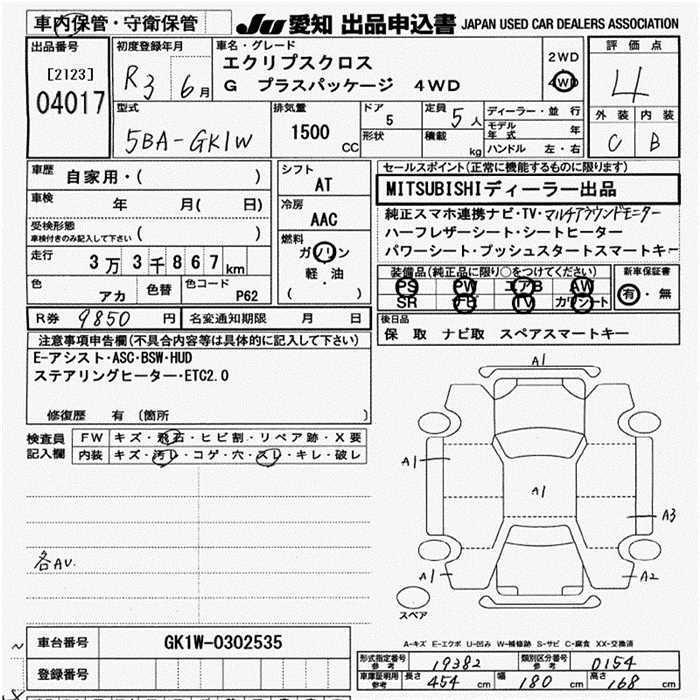 車内保管・守衛保管
JU 愛知 出品申込書 JAPAN USED CAR DEALERS ASSOCIATION
出品番号
[2123]
04017
初度登録年月
R3 6月
車名・グレード
エクリプスクロス
G プラスパッケージ 4WD
2WD
4WD
評価点
4
外装 内装
C B
型式
5BA-GK1W
排気量
1500 CC
ドア
5
形状
定員
5人
積載 kg
ディーラー・並行
モデル年式 年
ハンドル 左・右
車歴 自家用・( )
車検 年 月( 日)
受検形態
車検付きのみ記入して下さい ( )
走行 3万3千867km
色 アカ 色替 色コード P62
シフト
AT
冷房
AAC
燃料
ガソリン
軽・油
( )
セールスポイント(正常に機能するものに限ります)
MITSUBISHIディーラー出品
純正スマホ連携ナビ・TV・マルチアラウンドモニター
ハーフレザーシート・シートヒーター
パワーシート・プッシュスタートスマートキー
装備品(純正品に限り○をつけてください)
PS PW エアB AW
SR ナビ TV カワシート
新車保証書
有・無
R券 9850円 名変通知期限 月 日
後日品
保 取 ナビ取 スペアスマートキー
注意事項申告欄(不具合内容等は具体的に記入して下さい)
E-アシスト・ASC・BSW・HUD
ステアリングヒーター・ETC2.0
修復歴 有 (箇所 )
検査員記入欄
FW キズ・飛石・ヒビ割・リペア跡・X要
内装 キズ・汚レ・コゲ・穴・スレ・キレ・破レ
各AV.
A1
A1
A1
A3
A1
A2
スペア
A-キズ E-エクボ U-凹み W-補修跡 S-サビ C-腐食 XX-交換済
車台番号 GK1W-0302535
登録番号
形式指定番号 参考 19382 類別区分番号 参考 0154
車庫証明用 参考 長さ 454cm 幅 180cm 高さ 168cm